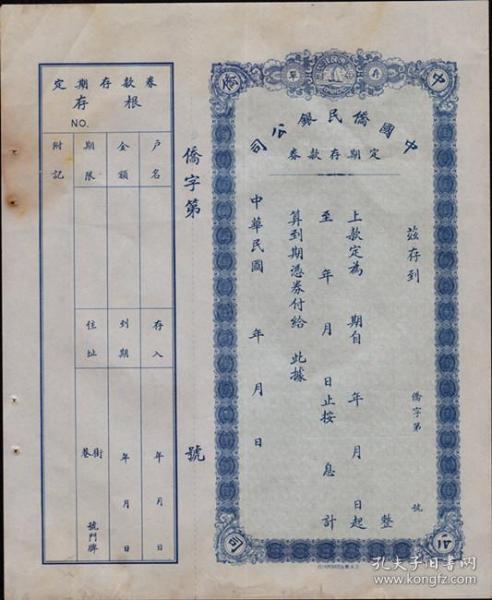 中
僑
公
司
存單
中國僑民銀公司
定期存款券
茲存到
僑字第 號
整
上款定為 期自 年 月 日起
至 年 月 日止按 息 計
算到期憑券付給 此據
中華民國 年 月 日
僑字第 號
定期存款券
存根
NO.
戶名
金額
期限
附記
存入 年 月 日
到期 年 月 日
住址 街巷 號門牌
孔夫子旧书网
www.kongfz.com